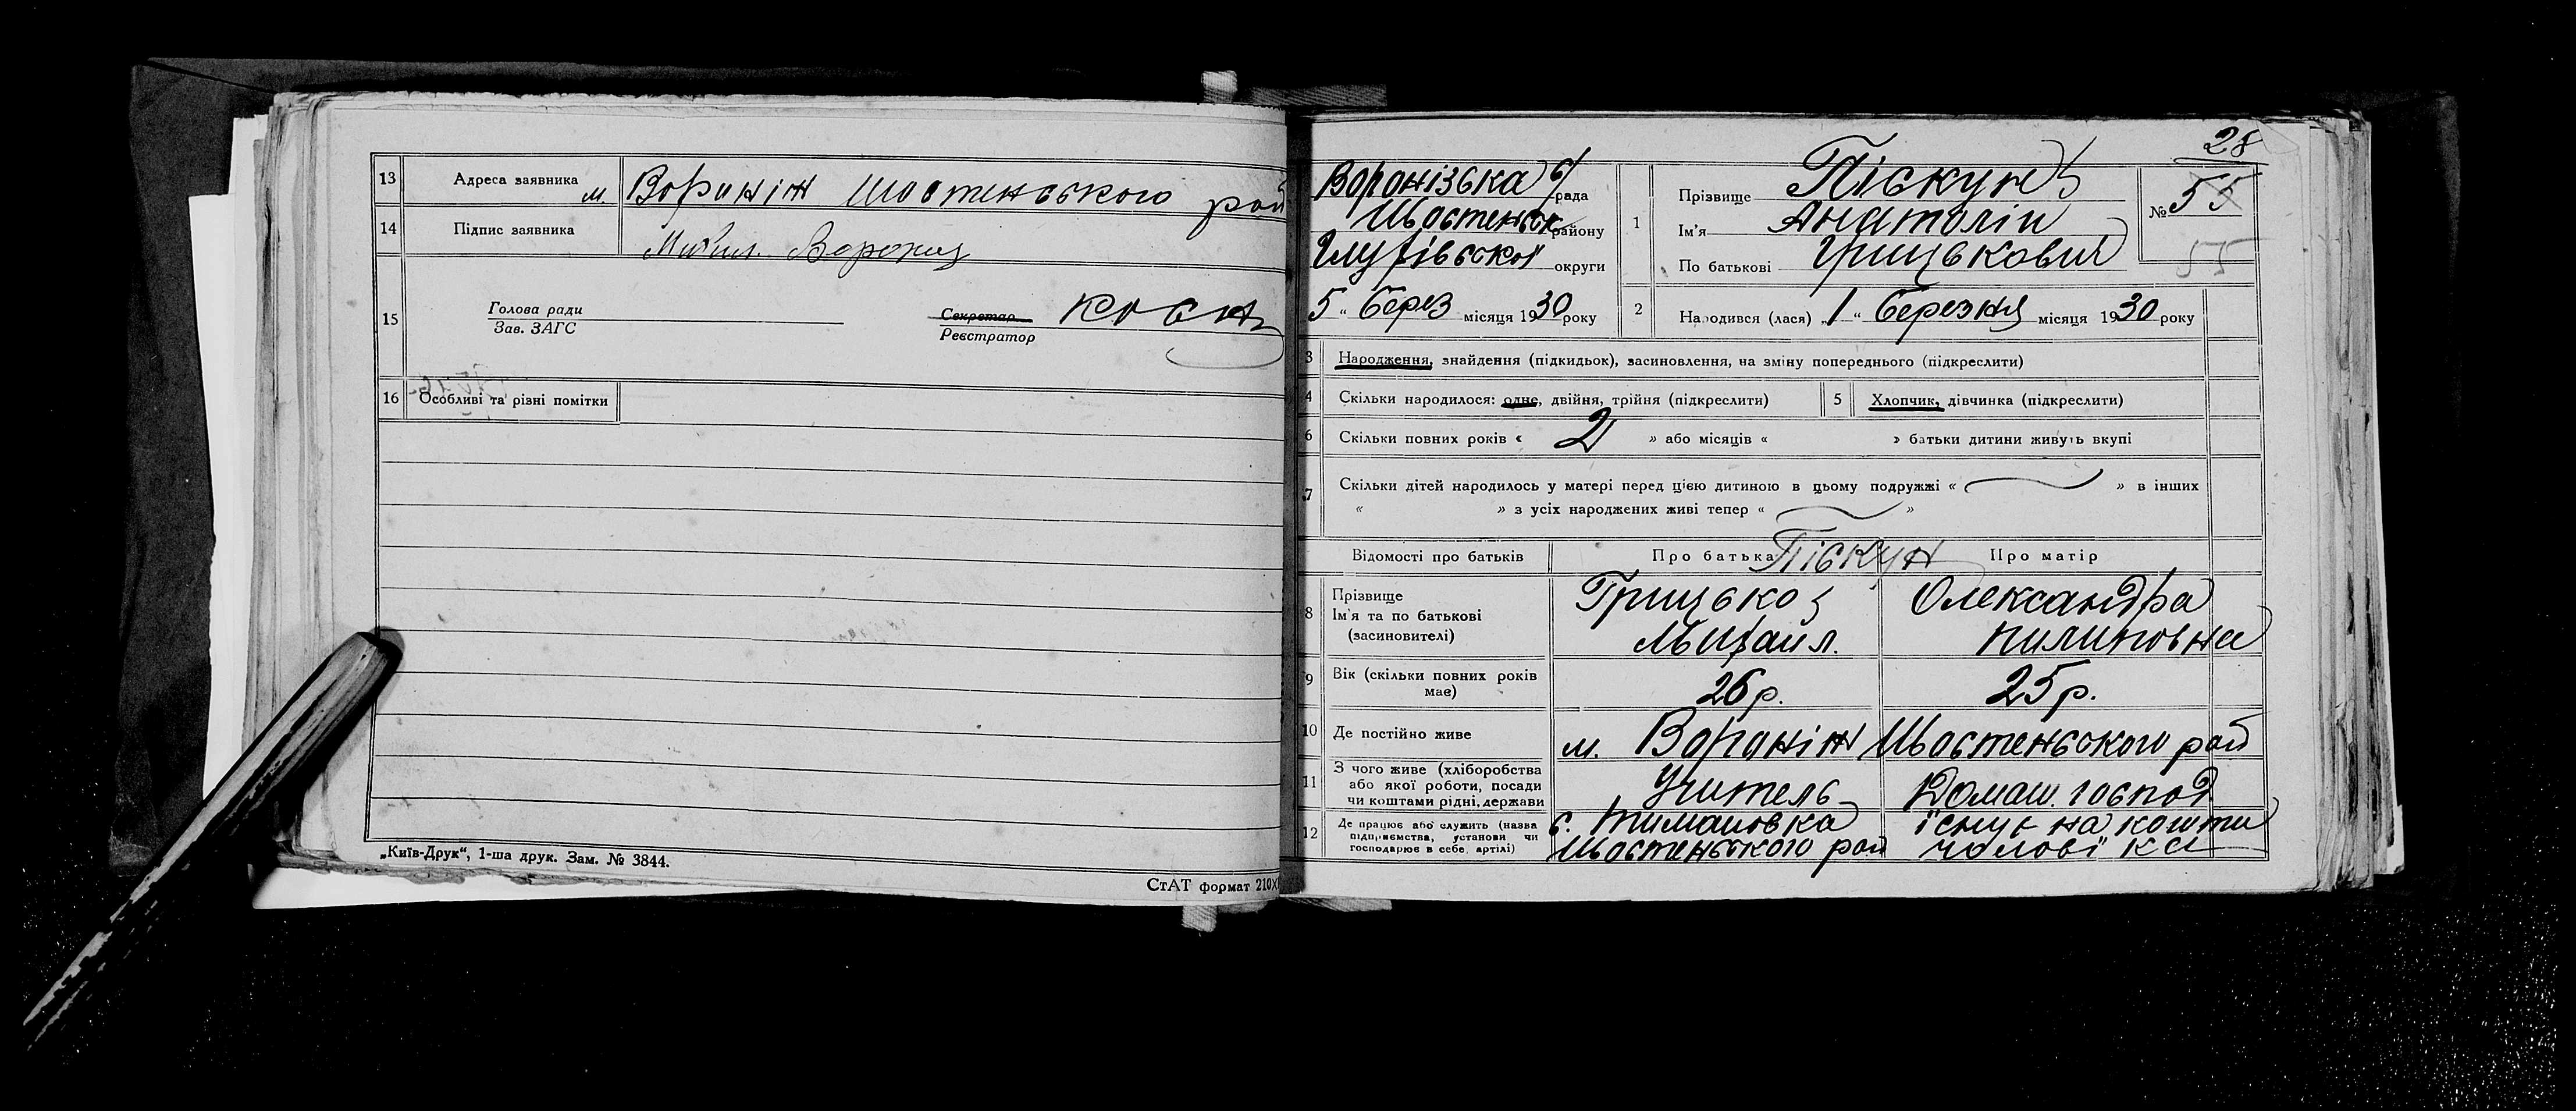 13 Адреса заявника м. Воронiж Шостенського рай
14 Підпис заявника
15 Голова ради
Зав. ЗАГС
Секретар
Реєстратор
16 Особливі та різні помітки
„Київ-Друк“, 1-ша друк. Зам. № 3844.
СтАТ формат 210
28
Воронізька с/рада
Шостенськ району
Глухівської округи
5 “ берез місяця 1930 року
1 Прізвище Піскун
Ім'я Анатолій
По батькові Грицькович
№ 55
55
2 Народився (лася) „1“ березня місяця 1930 року
3 Народження, знайдення (підкидьок), засиновлення, на зміну попереднього (підкреслити)
4 Скільки народилося: одне, двійня, трійня (підкреслити)
5 Хлопчик, дівчинка (підкреслити)
6 Скільки повних років « 2 » або місяців « » батьки дитини живуть вкупі
7 Скільки дітей народилось у матері перед цією дитиною в цьому подружжі « » в інших
« » з усіх народжених живі тепер « »
Відомості про батьків Про батька Піскун Про матір
8 Прізвище
Ім'я та по батькові
(засиновителі)
Грицько
Михайл.
Олександра
Пилиповна
9 Вік (скільки повних років має) 26 р. 25 р.
10 Де постійно живе м. Вороніж Шостенського рай
11 З чого живе (хліборобства
або якої роботи, посади
чи коштами рідні, держави
Учитель
Домаш. господ
12 Де працює або служить (назва
підприємства, установи чи
господарює в себе, артілі)
с. Тимановка
Шостенського рай
існує на кошти
чоловіка